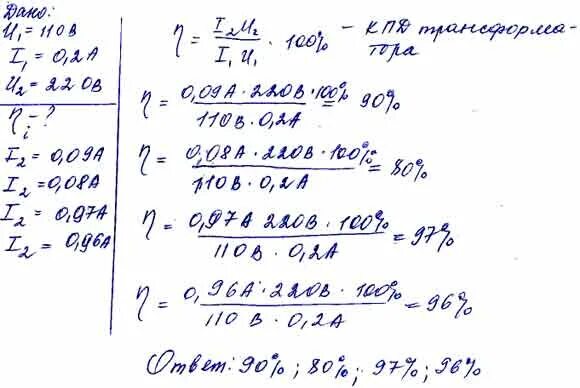 Дано:
U₁ = 110 В
I₁ = 0,2 А
U₂ = 220 В
η - ?
i
I₂ = 0,09 А
I₂ = 0,08 А
I₂ = 0,97 А
I₂ = 0,96 А
η = I₂U₂ / I₁U₁ · 100% – КПД трансформа-
тора
η = 0,09А · 220В · 100% / 110В · 0,2А = 90%
η = 0,08А · 220В · 100% / 110В · 0,2А = 80%
η = 0,97А 220В · 100% / 110В · 0,2А = 97%
η = 0,96А · 220В · 100% / 110В · 0,2А = 96%
Ответ: 90%; 80%; 97%; 96%